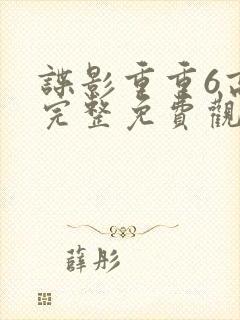 諜影重重6高
完整免費觀
薛彤